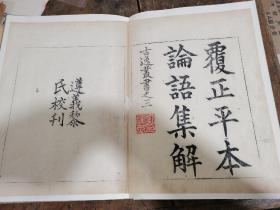 覆正平本
論語集解
古逸叢書之三
遵義黎
民校刊